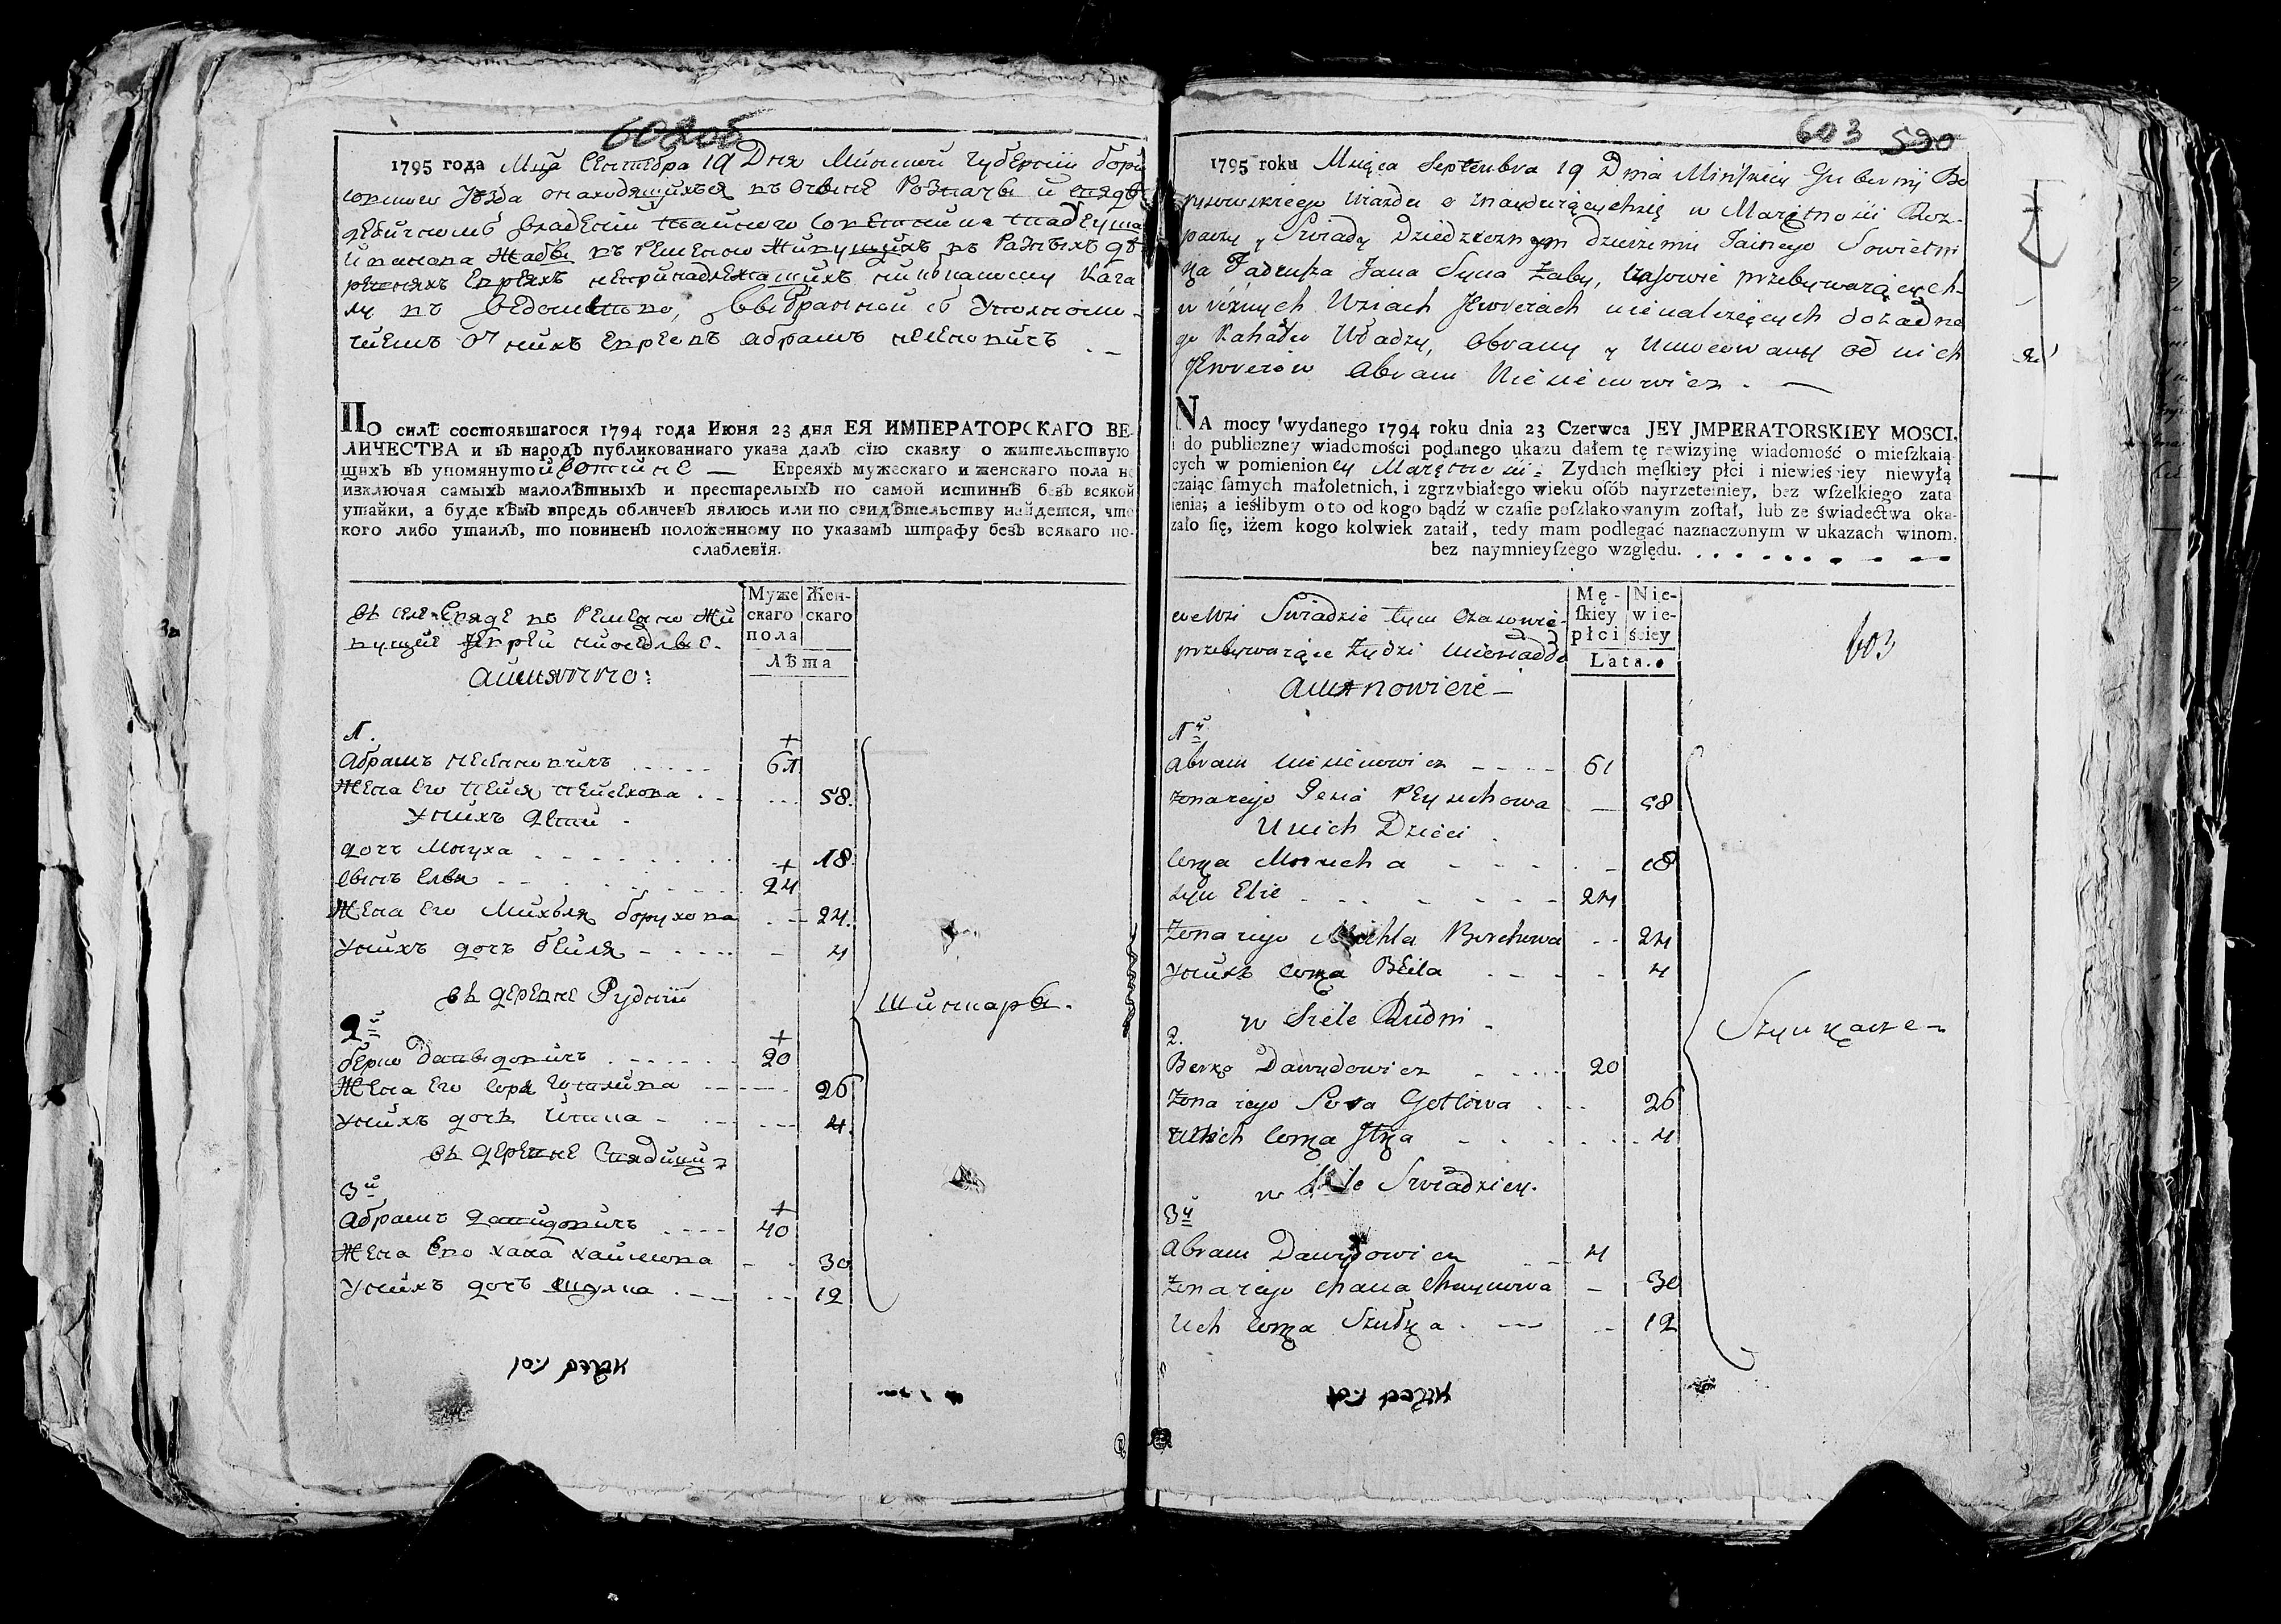 602об
1795 года Мца Сентебра 19 Дня Минской губернии бори
совского уѣзда о находящихся въ отчине Розпачъ и
владении Тайного Советника Тадеуша
Иванова Жабы въРеменно Живущихъ въ Разныхъ де
ревняхъ Евреяхъ непринадлежащихъ ни
лу въ ведомство, выбранной
отъ нихъ Евреевъ Абрамъ
ПО силѣ состоявшагося 1794 года Июня 23 дня ЕЯ ИМПЕРАТОРСКАГО ВЕ-
ЛИЧЕСТВА и въ народъ публикованнаго указа далъ сію сказку о жительствую
щихъ въ упомянутой вотчине — Евреяхъ мужескаго и женскаго пола не
изключая самыхъ малолѣтныхъ и престарелыхъ по самой истиннѣ безъ всякой
утайки, а буде кѣмъ впредь обличенъ явлюсь или по свидѣтельству найдется, что
кого либо утаилъ, то повиненъ положенному по указамъ штрафу безъ всякаго по-
слабленія.
Муже Жен-
скаго скаго
пола
Лѣта
въ селе Свяде въ Ременно Жи
вущие Евреи
а имянно:
1.
Абрамъ 61
Жена Его Пейся Пейсехова 58.
У нихъ дети
дочь Мнуха 18
сынъ Елья 24
Жена Его Михъля борухова 24.
У нихъ дочь бейля 4
въ деревне Рудни
2й
берко Давыдовичъ 20
Жена Его Сора Готлива 26
У нихъ дочь Итка 4
Шинкары.
въ деревне Свядицы
3й
Абрамъ Давидовичъ 40
Жена Его хана хаимова 30
У нихъ дочъ Шулка 12
603 590
1795 roku Mięca Septembra 19 Dnia Minskiey Gubernij Bo
rysowskiego Uiazdu o znayduiących się w Maiętnosci Roz-
paczy y Swiady Dziedzicznym dzierzeniu Tainego Sowietni
ka Tadeusza Jana Syna Żaby, czasowie przebywaiących
w róznych Wsiach Jewreiach nienalezących do zadne
go Kahału Władzy, Obrany y Umocowany od nich
Jewreiow Abram
NA mocy wydanego 1794 roku dnia 23 Czerwca JEY JMPERATORSKIEY MOSCI,
i do publiczney wiadomości podanego ukazu dałem tę rewizyinę wiadomość o mieſzkaią
cych w pomienioney Maiętnosci: Zydach męſkiey płci i niewieściey niewyłą
czaiąc ſamych małoletnich, i zgrzybiałego wieku osób nayrzetelniey, bez wſzelkiego zata
ienia; a ieślibym o to od kogo bądź w czaſie poſzlakowanym zoſtał, lub ze świadectwa oka-
zało się, iżem kogo kolwiek zataił, tedy mam podlegać naznaczonym w ukazach winom,
bez naymnieyſzego względu.
Mę- Nie-
ſkiey wie-
płci ściey
Lata.
we Wsi Swiadzie tym Czasowie
przebywaiące Żydzi
a imianowicie —
603
1й
Abram 61
żona iego Pesia Peysuchowa — 58
U nich Dzieci
corka Mnucha 18
syn Elie 24
żona iego Michla Borchowa 24
У нихъ corka Beila 4
w Siele Rudni
2.
Berko Dawydowicz 20
Żona iego Sora Gotliwa 26
U nich corka Itka 4
Szynkarze
w Siele Swiadzicy.
3й
Abram Dawydowicz 4
Żona iego Chana Chaymowa — 30
U ich corka Szulka 12